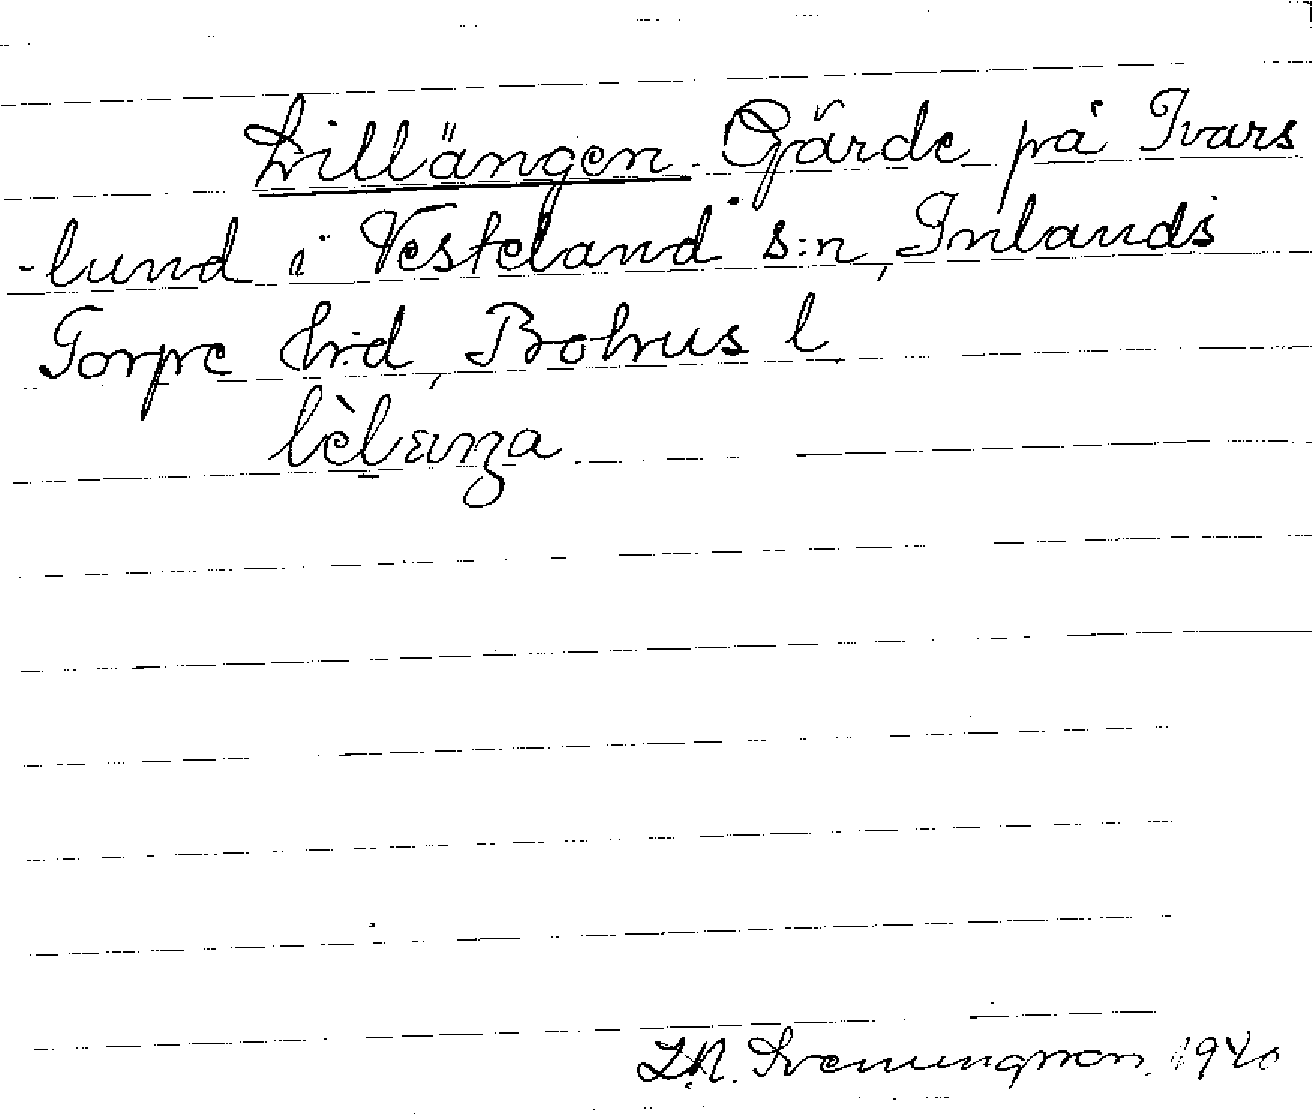 Lillängen Gärde på Ivars
-lund i Vesteland s:n, Inlands
Torpe hrd, Bohus l
lèlæŋa
1940